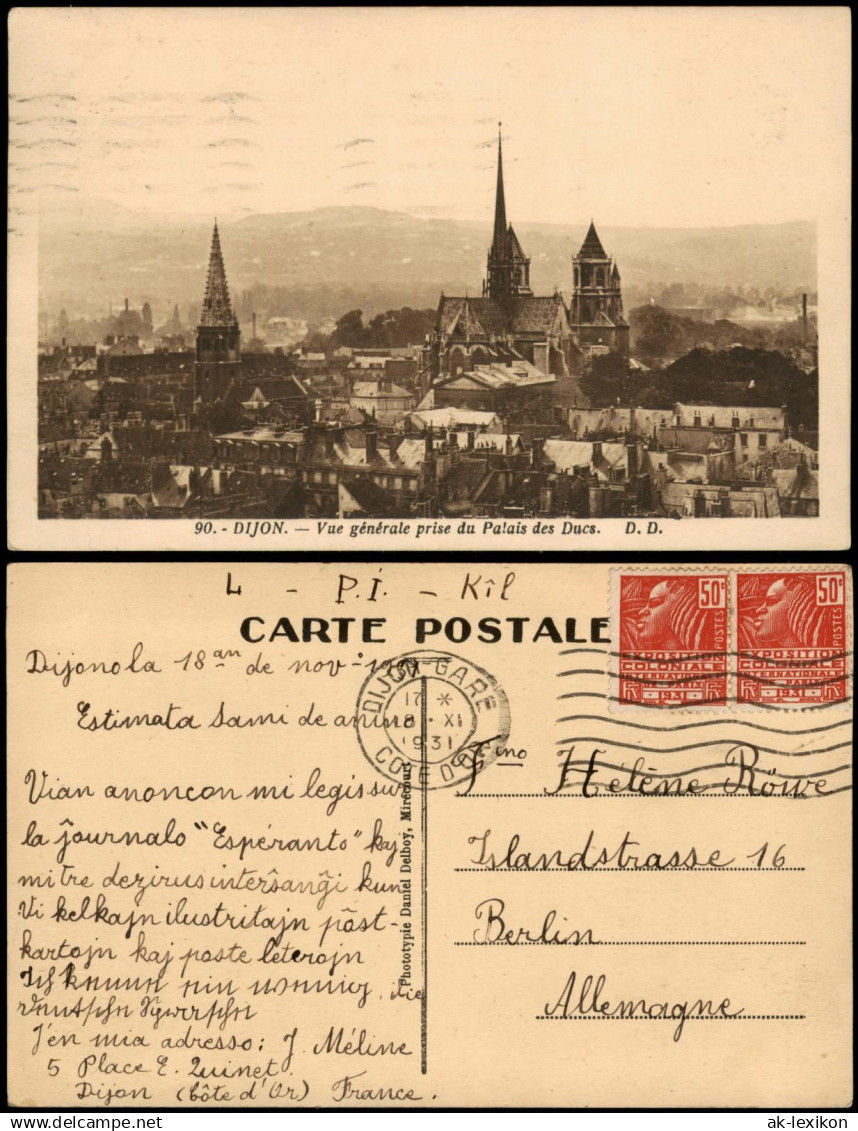 90. - DIJON. — Vue générale prise du Palais des Ducs. D. D.
L - P.I. - Kîl
CARTE POSTALE
Dijonola 18an de nov- 1931
Estimata samideanino
Vian anoncon mi legis sur
la ĵournalo "Espéranto" kaj
mi tre dezirus interŝanĝi kun
Vi kelkajn ilustritajn pôst-
kartojn kaj poste leterojn
Ich kenne ein wenig die
deutschen Sprachen
J'en mia adresso: J. Méline
5 Place E. Quinet
Dijon (Côte d'Or) France.
Phototypie Daniel Delboy, Mirecourt
DIJON-GARE
17 *
18 · XI
1931
COTE D'OR
50c
POSTES
EXPOSITION
COLONIALE
INTERNATIONALE
PARIS
1931
50c
POSTES
EXPOSITION
COLONIALE
INTERNATIONALE
PARIS
1931
Fino Hélène Röwe
Islandstrasse 16
Berlin
Allemagne
© ak-ansichtskarten.de
ak-lexikon